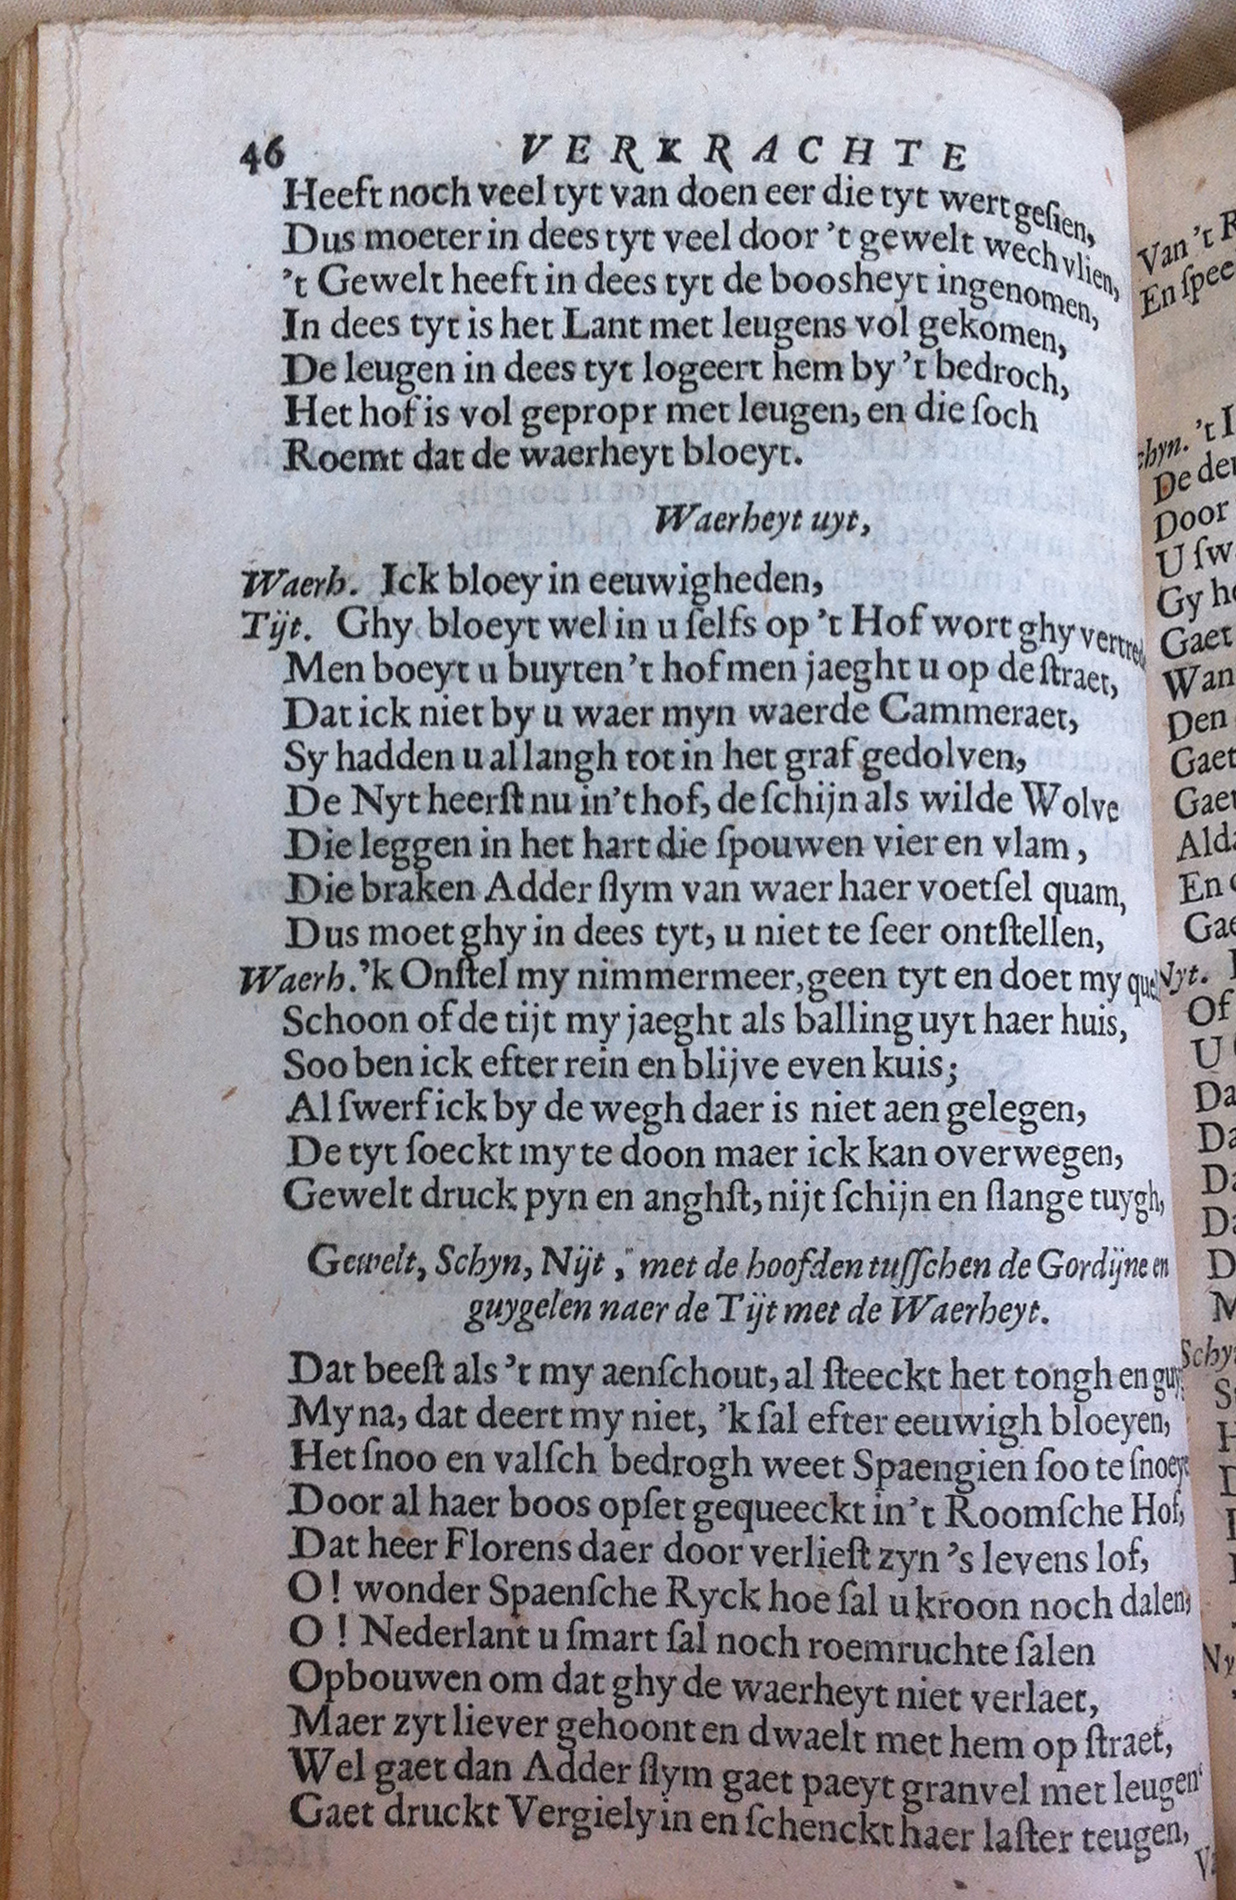 46 VERKRACHTE
Heeft noch veel tyt van doen eer die tyt wert geſien,
Dus moeter in dees tyt veel door 't gewelt wech vlien,
't Gewelt heeft in dees tyt de boosheyt ingenomen,
In dees tyt is het Lant met leugens vol gekomen,
De leugen in dees tyt logeert hem by 't bedroch,
Het hof is vol gepropt met leugen, en die ſoch
Roemt dat de waerheyt bloeyt.
Waerheyt uyt,
Waerh. Ick bloey in eeuwigheden,
Tijt. Ghy bloeyt wel in u ſelfs op 't Hof wort ghy vertrede
Men boeyt u buyten 't hof men jaeght u op de ſtraet,
Dat ick niet by u waer myn waerde Cammeraet,
Sy hadden u al langh tot in het graf gedolven,
De Nyt heerſt nu in't hof, de ſchijn als wilde Wolve
Die leggen in het hart die ſpouwen vier en vlam,
Die braken Adder ſlym van waer haer voetſel quam,
Dus moet ghy in dees tyt, u niet te ſeer ontſtellen,
Waerh. 'k Onſtel my nimmermeer, geen tyt en doet my quel
Schoon of de tijt my jaeght als balling uyt haer huis,
Soo ben ick efter rein en blijve even kuis;
Al ſwerf ick by de wegh daer is niet aen gelegen,
De tyt ſoeckt my te doon maer ick kan overwegen,
Gewelt druck pyn en anghſt, nijt ſchijn en ſlange tuygh,
Gewelt, Schyn, Nijt, met de hoofden tuſſchen de Gordijne en
guygelen naer de Tijt met de Waerheyt.
Dat beeſt als 't my aenſchout, al ſteeckt het tongh en guy
My na, dat deert my niet, 'k ſal efter eeuwigh bloeyen,
Het ſnoo en valſch bedrogh weet Spaengien ſoo te ſnoeye
Door al haer boos opſet gequeeckt in't Roomſche Hof,
Dat heer Florens daer door verlieſt zyn 's levens lof,
O! wonder Spaenſche Ryck hoe ſal u kroon noch dalen,
O! Nederlant u ſmart ſal noch roemruchte ſalen
Opbouwen om dat ghy de waerheyt niet verlaet,
Maer zyt liever gehoont en dwaelt met hem op ſtraet,
Wel gaet dan Adder ſlym gaet paeyt granvel met leugen
Gaet druckt Vergiely in en ſchenckt haer laſter teugen,
Van 't R
En ſpee
chyn. 't I
De de
Door
U ſw
Gy h
Gaet
Wan
Den
Gaet
Gae
Ald
En
Gae
Nyt.
Of
U
Da
Da
Da
Da
D
M
Schy
S
H
D
Ny